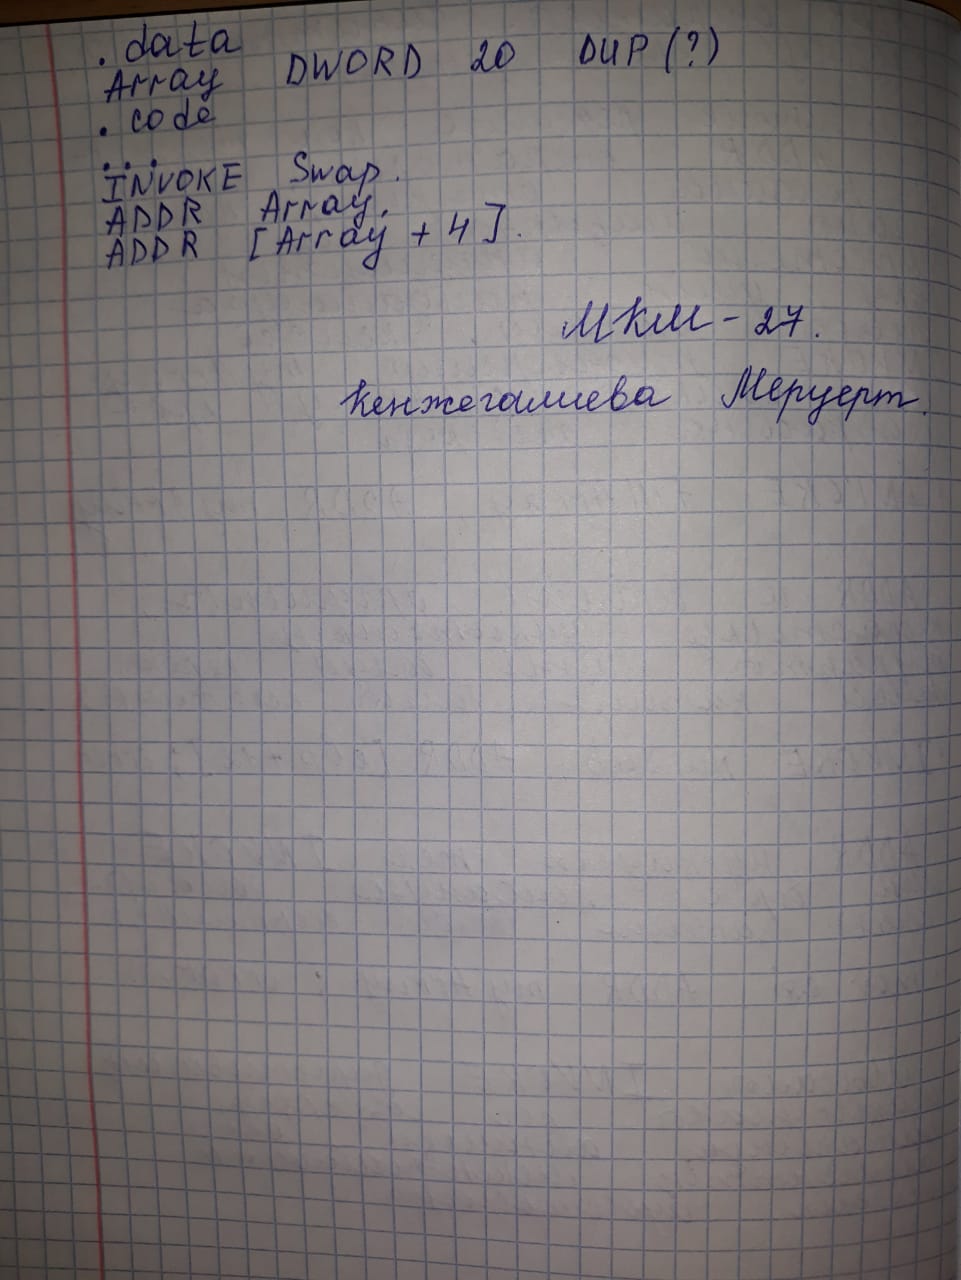 .data
Array DWORD 20 DUP (?)
.code
...
INVOKE Swap.
ADDR Array,
ADDR [Array + 4].
МКМ - 27.
Кенжегалиева Меруерт.